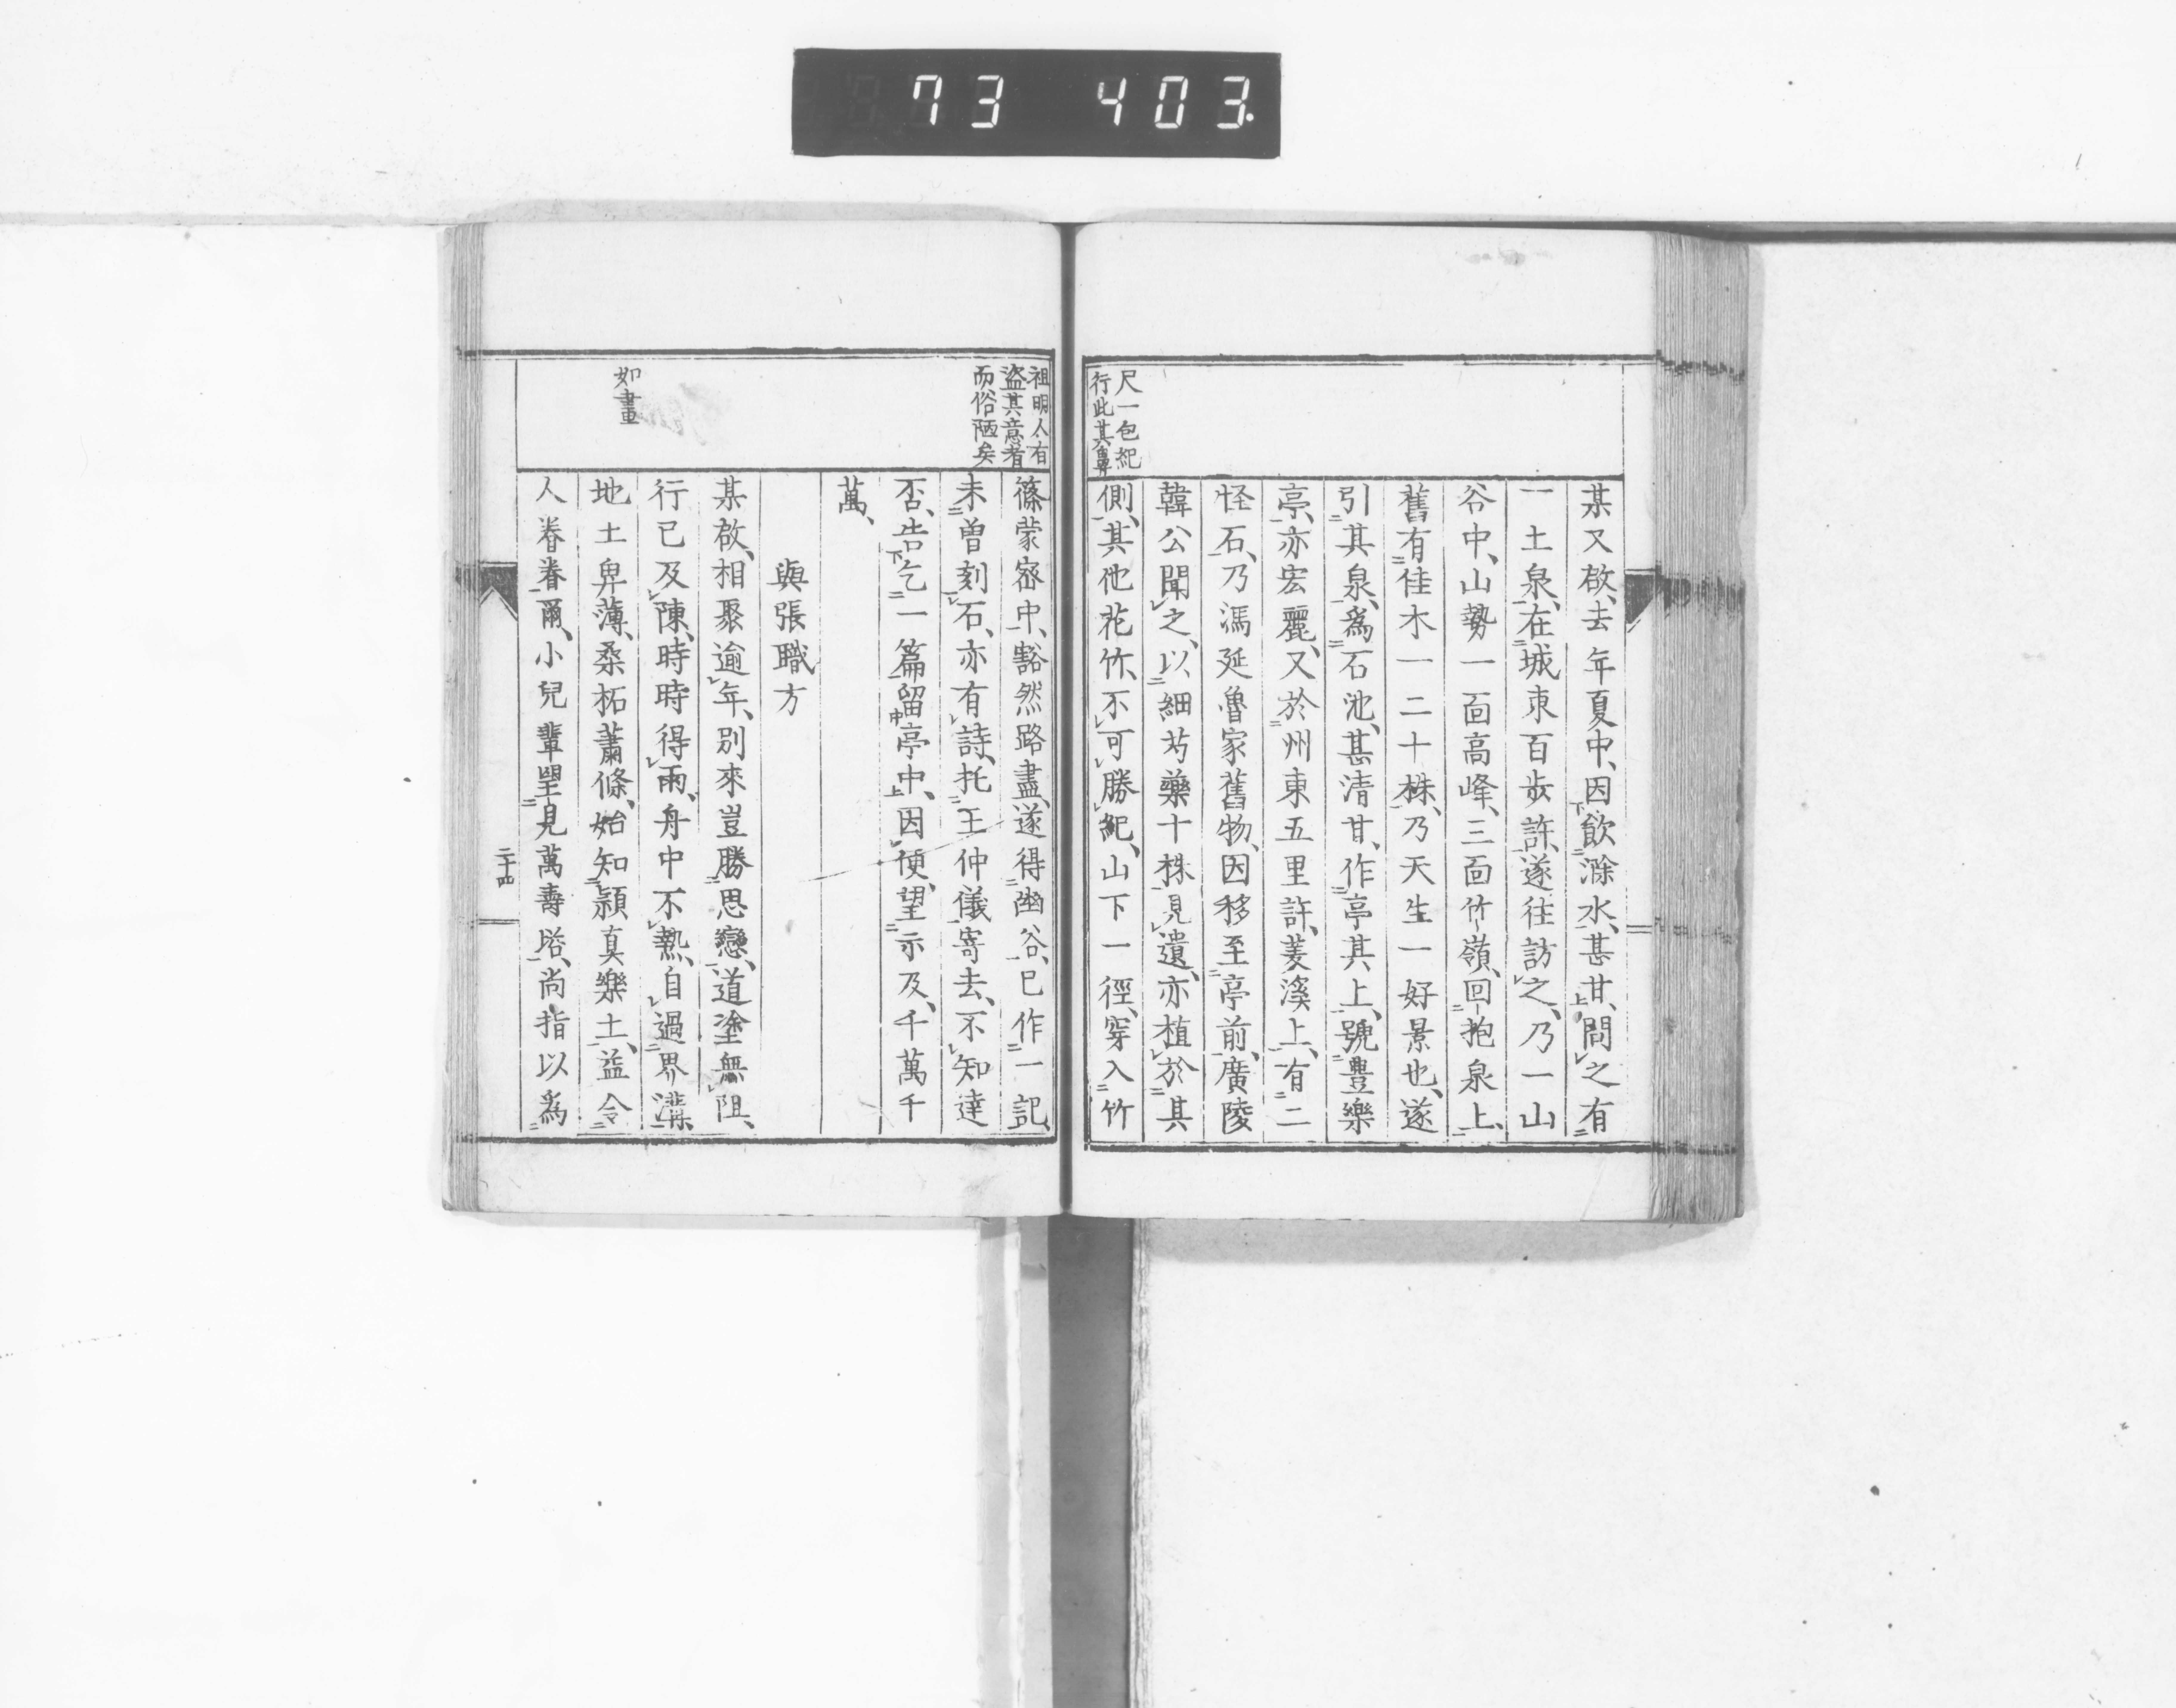 73 403.
尺一包紀
行此其鼻
某又啟、去年夏中、因飲滁水、甚甘、問之有
一土泉、在城東百步許、遂往訪之、乃一山
谷中、山勢一面高峰、三面竹嶺、回抱泉上、
舊有佳木一二十株、乃天生一好景也、遂
引其泉、為石池、甚清甘、作亭其上、號豊樂
亭、亦宏麗、又於州東五里許、菱溪上、有二
怪石、乃馮延魯家舊物、因移至亭前、廣陵
韓公聞之、以細芍藥十株見遺、亦植於其
側、其他花竹、不可勝紀、山下一徑、穿入竹
祖明人有
盜其意者
而俗陋矣
篠蒙密中、豁然路盡、遂得幽谷、已作一記、
未曾刻石、亦有詩、托王仲儀寄去、不知達
否、告乞一篇留亭中、因便、望示及、千萬千
萬、
與張職方
某啟、相聚逾年、別來豈勝思戀、道塗無阻、
行已及陳、時時得雨、舟中不熱、自過界溝、
如畫
地土卑薄、桑柘蕭條、始知潁真樂土、益令
人眷眷爾、小兒輩望見萬壽塔、尚指以為
二十四